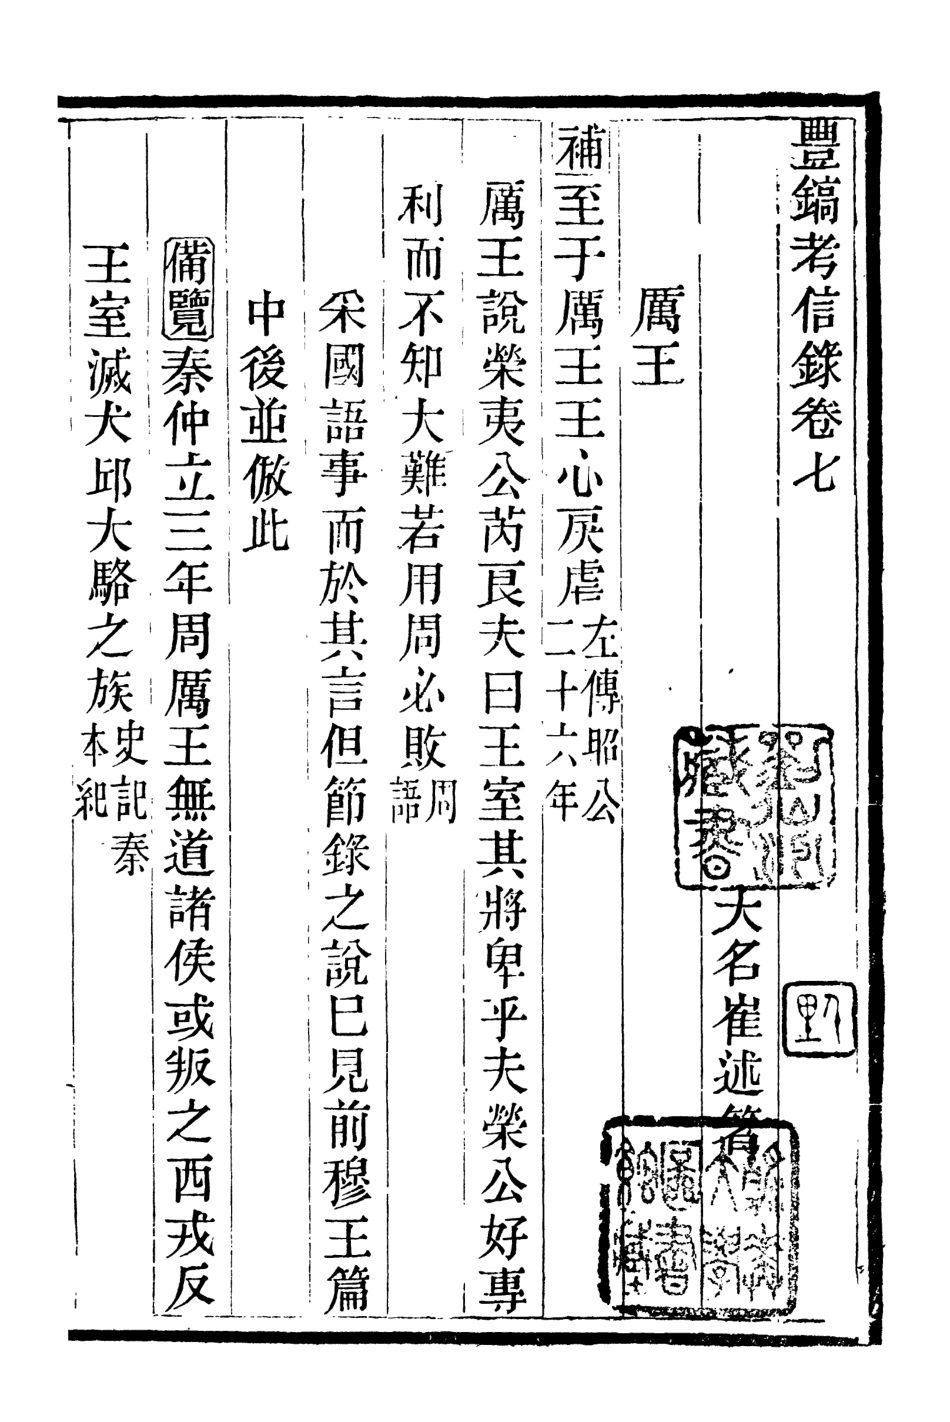 豐鎬考信錄卷七
大名崔述著
厲王
補至于厲王王心戾虐左傳昭公二十六年
厲王說榮夷公芮良夫曰王室其將卑乎夫榮公好專
利而不知大難若用周必敗周語
采國語事而於其言但節錄之說巳見前穆王篇
中後並倣此
備覽秦仲立三年周厲王無道諸侯或叛之西戎反
王室滅犬邱大駱之族史記秦本紀